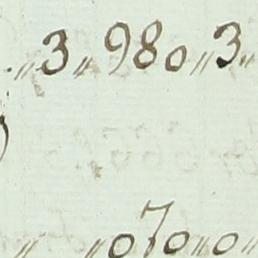 „ 3 „ 980 „ 3 „
„ „ 070 „ 0 „